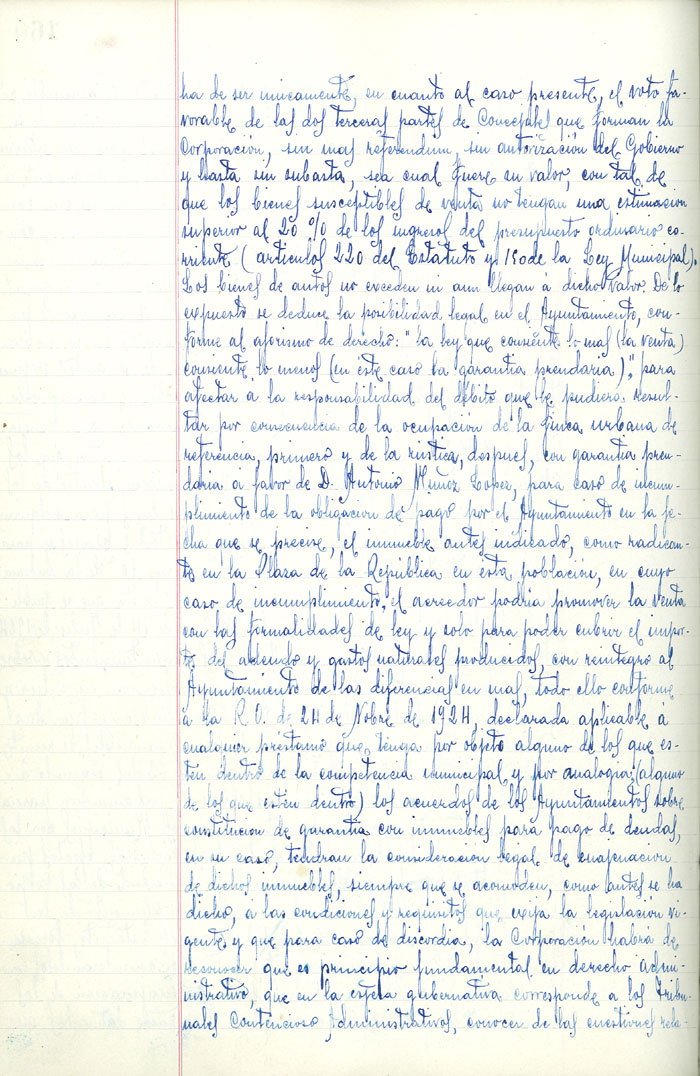 ha de ser unicamente, en cuanto al caso presente, el voto fa-
vorable de las dos terceras partes de Concejales que forman la
Corporación, sin mas referendum, sin autorización del Gobierno
y hasta sin subasta, sea cual fuere su valor, con tal de
que los bienes susceptibles de venta no tengan una estimacion
superior al 20 % de los ingresos del presupuesto ordinario co-
rriente (articulos 220 del Estatuto y 150 de la Ley Municipal).
Los bienes de autos no exceden ni aun llegan á dicho valor. De lo
expuesto se deduce la posibilidad legal en el Ayuntamiento, con-
forme al aforismo de derecho: "la ley que consiente lo mas (la venta)
consiente lo menos (en este caso la garantia prendaria)", para
afectar a la responsabilidad del débito que le pudiera resul-
tar por consecuencia de la ocupación de la finca urbana de
referencia, primero y de la rústica, despues, con garantia pren-
daria a favor de D. Antonio Muñoz Lopez, para caso de incum-
plimiento de la obligacion de pago por el Ayuntamiento en la fe-
cha que se precise, el inmueble antes indicado, como radican-
te en la Plaza de la República en esta población, en cuyo
caso de incumplimiento, el acreedor podria promover la venta
con las formalidades de ley y solo para poder cubrir el impor-
te del adeudo y gastos naturales producidos, con reintegro al
Ayuntamiento de las diferencias en mas, todo ello conforme
á la R.O. de 24 de Nobre de 1924, declarada aplicable á
cualquier préstamo que tenga por objeto alguno de los que es-
ten dentro de la competencia municipal y por analogia: (alguno
de los que esten dentro) los acuerdos de los Ayuntamientos sobre
constitucion de garantia con inmuebles para pago de deudas,
en su caso, tendran la consideración legal de enajenacion
de dichos inmuebles, siempre que se acomoden, como antes se ha
dicho, a las condiciones y requisitos que exija la legislacion vi-
gente y que para caso de discordia, la Corporación habrá de
reconocer que es principio fundamental en derecho admi-
nistrativo, que en la esfera gubernativa corresponde a los Tribu-
nales Contencioso Administrativos, conocer de las cuestiones rela-